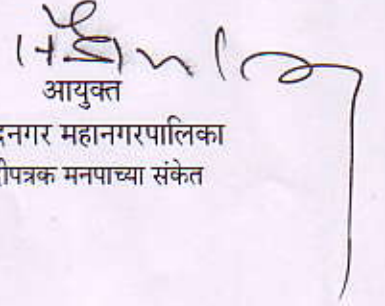 आयुक्त
दनगर महानगरपालिका
ीपत्रक मनपाच्या संकेत